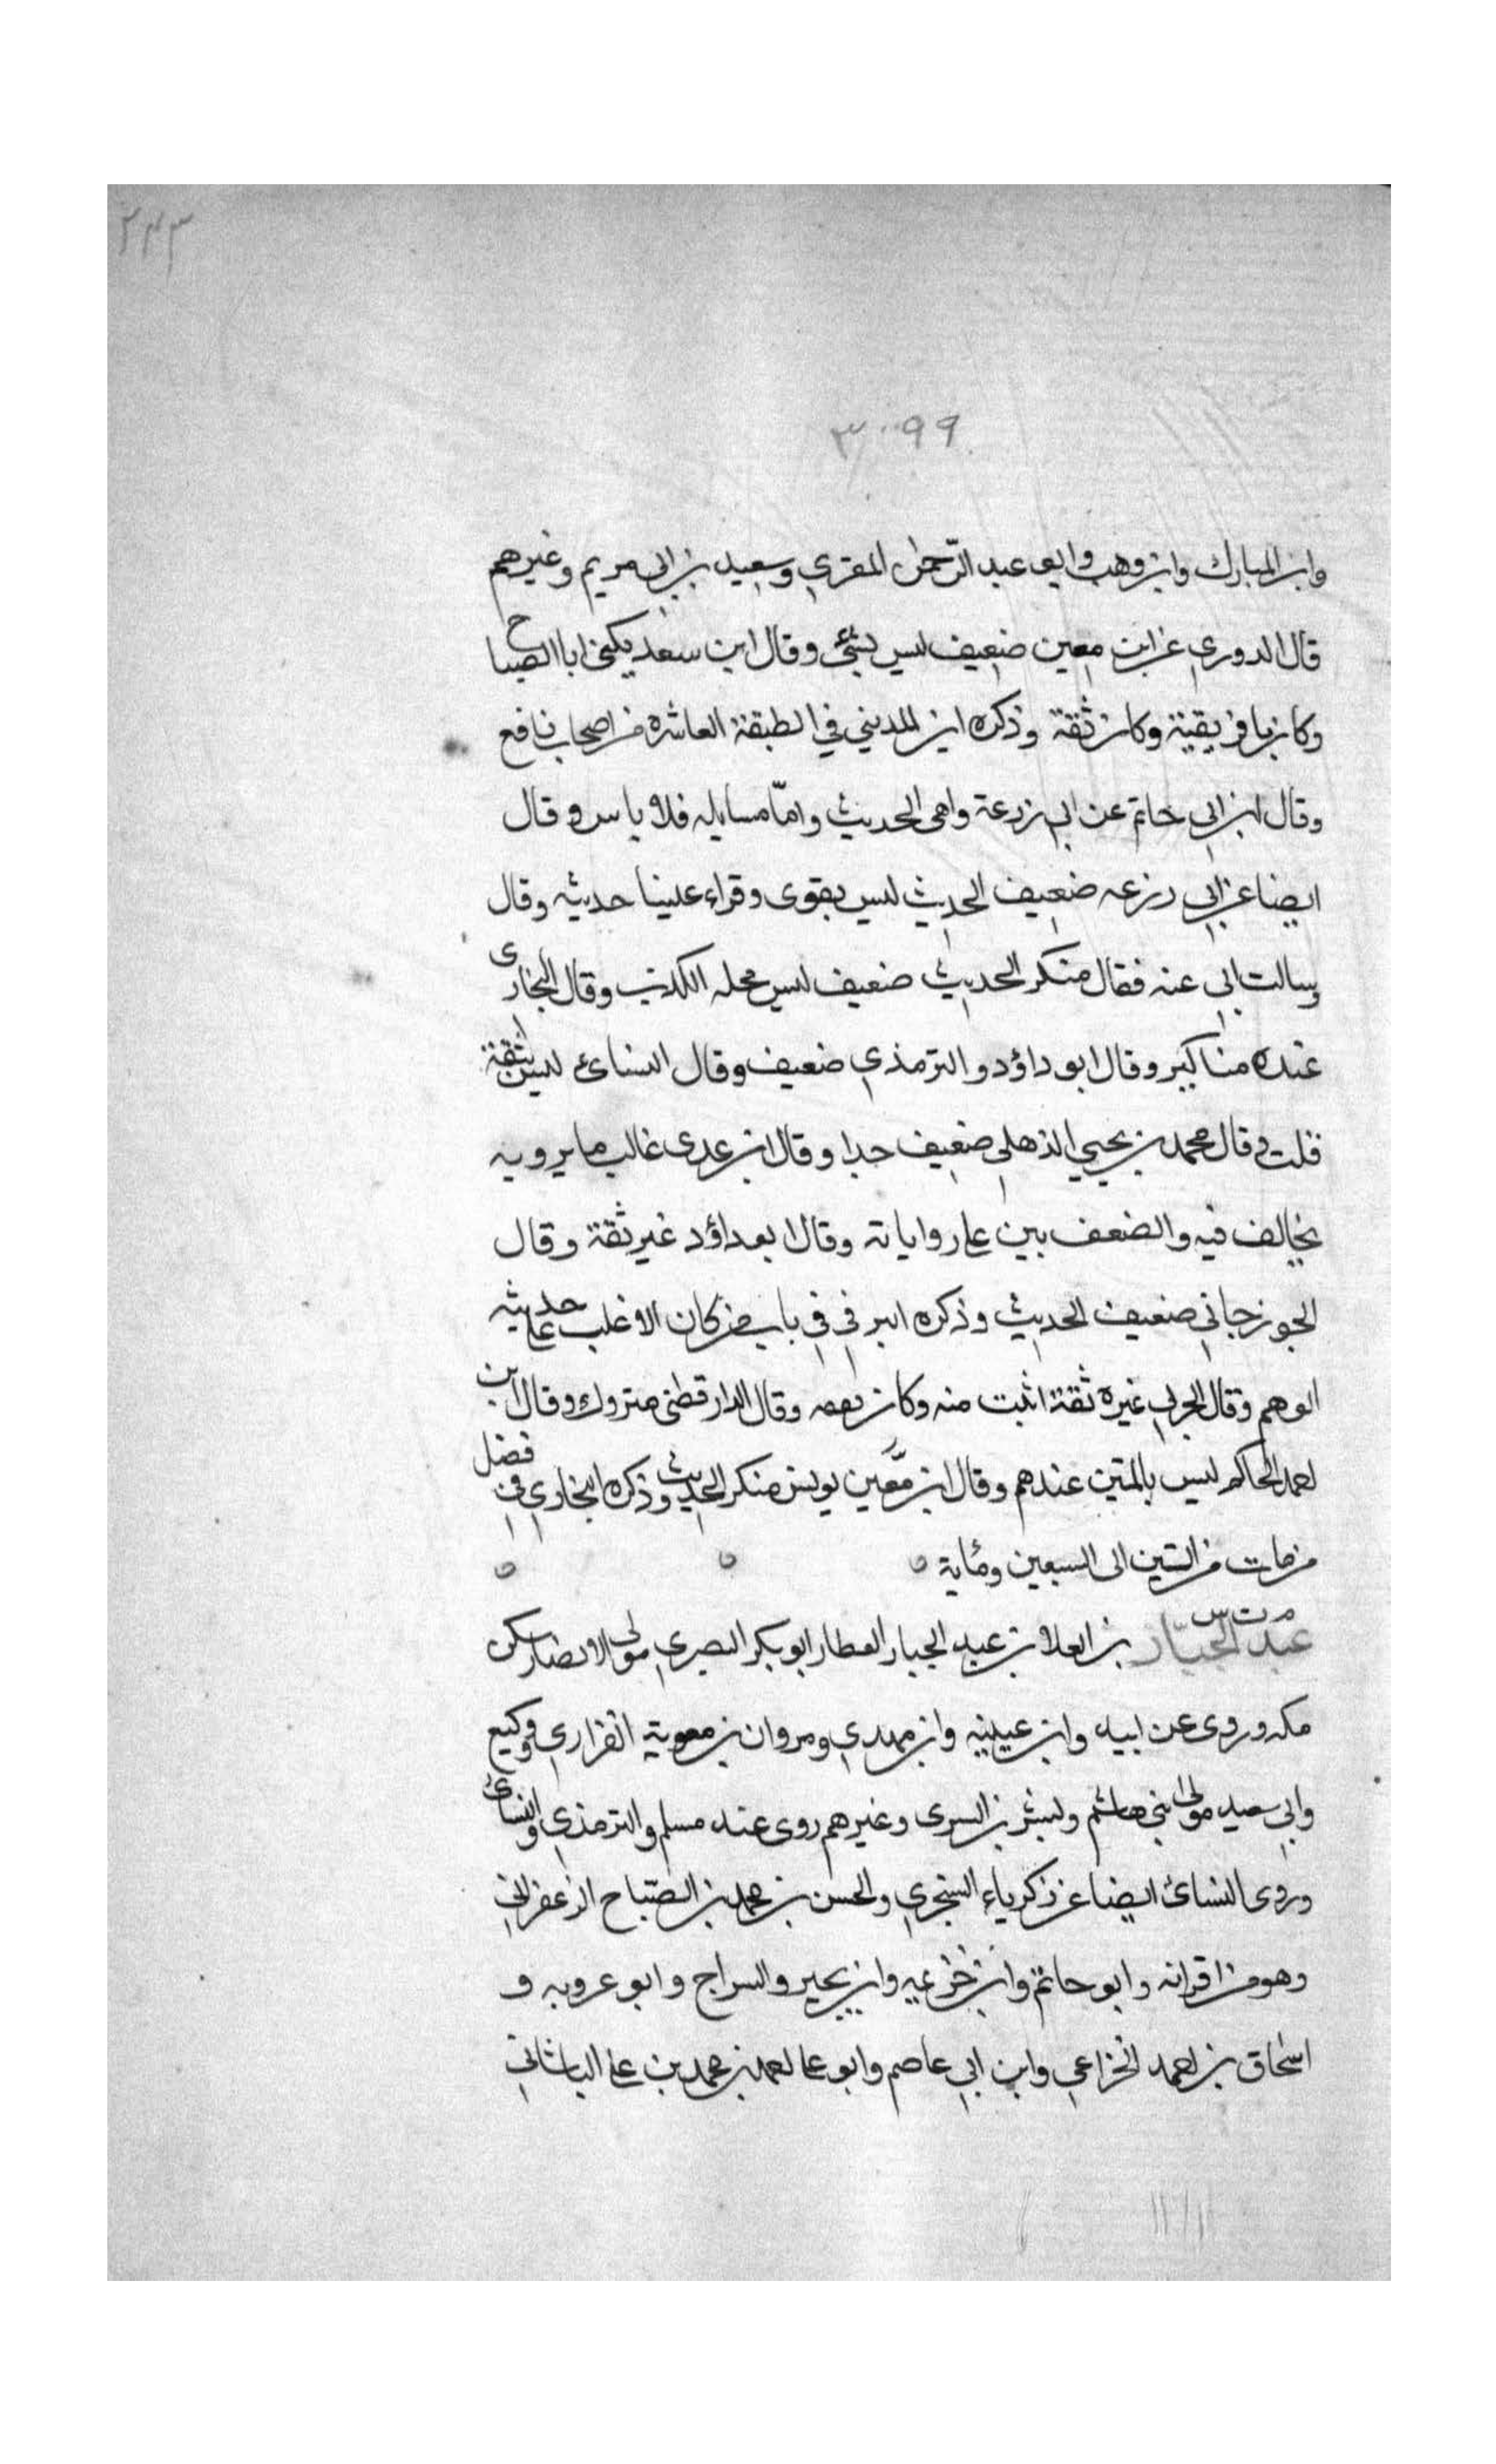 ٢٤٣
٣٠٠٩٩
وابن المبارك وابن وهب وابو عبد الرّحمٰن المقرى وسعيد بن ابى مريم وغيرهم
قال الدورى عن ابن معين ضعيف ليس بشئ وقال ابن سعد يكنى ابا الصباح
وكان بافريقية وكان ثقة وذكره ابن المدينى في الطبقة العاشرة من اصحاب نافع
وقال ابن ابى حاتم عن ابى زرعة واهى الحديث وامّا مسايله فلا باس وقال
ايضا عن ابى زرعه ضعيف الحديث ليس بقوى وقراء علينا حديثه وقال
وسالت ابى عنه فقال منكر الحديث ضعيف ليس محله الكذب وقال البخارى
عنده مناكير وقال ابو داؤد والترمذي ضعيف وقال النسائ ليس بثقة
قلت وقال محمد بن يحيى الذهلى ضعيف جدا وقال ابن عدى غالب ما يرويه
يخالف فيه والضعف بين على رواياته وقال ابو داؤد غير ثقة وقال
الجوزجانى ضعيف الحديث وذكره البرقى فى باب من كان الاغلب على حديثه
الوهم وقال الحربى غيره ثقة اثبت منه وكان وقال الدارقطنى متروك وقال ابن
احمد الحاكم ليس بالمتين عندهم وقال ابن معين يونس منكر الحديث وذكره البخاري فى فضل
من مات من الستين الى السبعين ومأية
م ت س
عبد الجبّار بن العلا بن عبد الجبار العطار ابو بكر البصرى مولى الانصار سكن
مكه وروى عن ابيه وابن عيينه وابن مهدى ومروان بن معوية الفزارى ووكيع
وابى سعيد مولى بنى هاشم وبشر بن السرى وغيرهم روى عنه مسلم والترمذى والنسائ
وروى النسائ ايضا عن زكرياء السنجري والحسن بن محمد بن الصّباح الزعفرانى
وهو من اقرانه وابو حاتم وابن خزيمه وابن بجير والسراج وابو عروبه و
اسحاق بن احمد الخزاعى وابن ابى عاصم وابو على احمد بن محمد بن على الباشانى